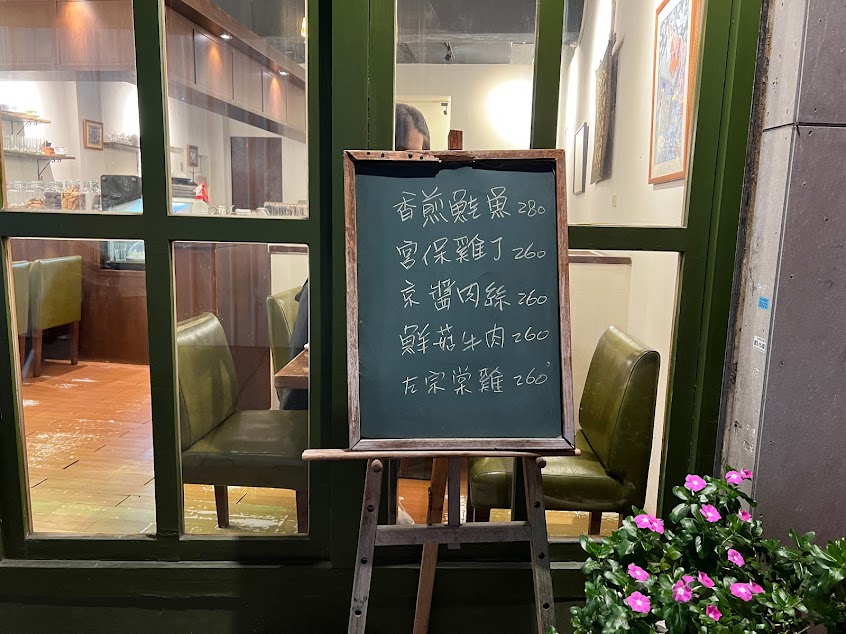 香煎鮭魚 280
宮保雞丁 260
京醬肉絲 260
鮮菇牛肉 260
左宗棠雞 260